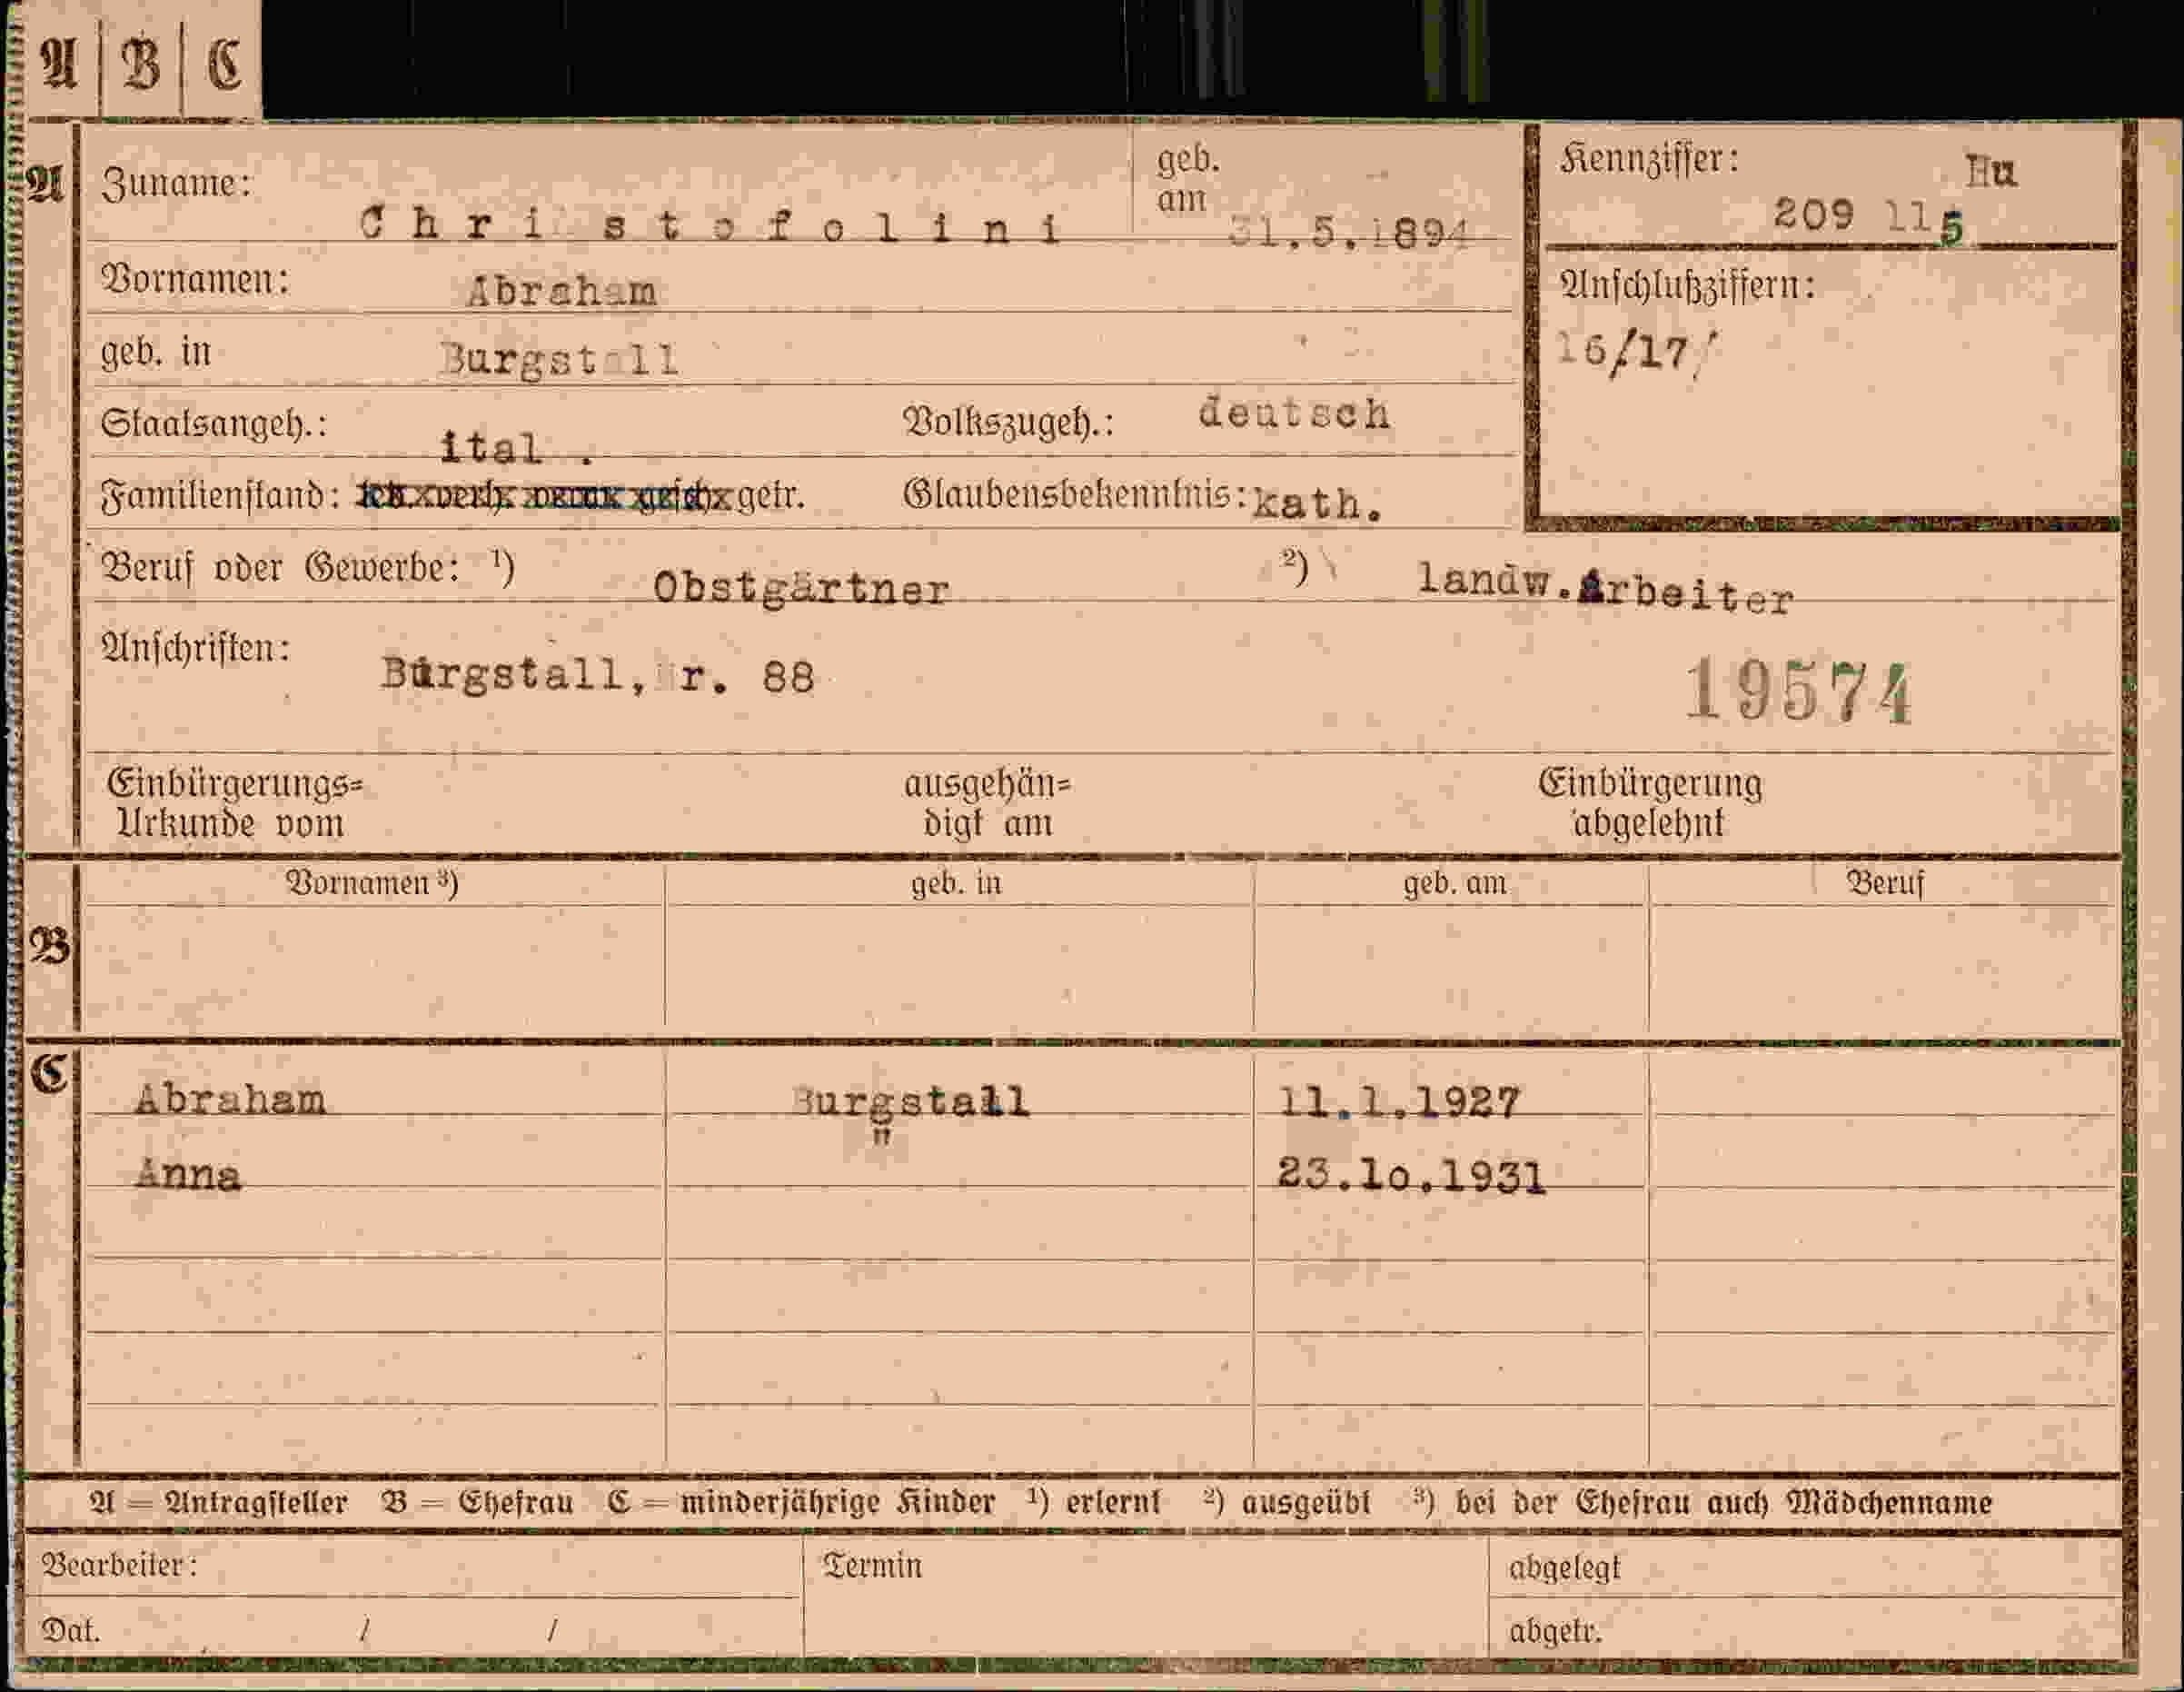 A | B | C
A Zuname: Christofolini geb. am 31.5.1894
Kennziffer: Hu
209 115
Vornamen: Abraham
Anschlußziffern:
16/17/
geb. in Burgstall
Staatsangeh.: ital. Volkszugeh.: deutsch
Familienstand: getr. Glaubensbekenntnis: kath.
Beruf oder Gewerbe: ¹) Obstgärtner ²) landw.Arbeiter
Anschriften: Burgstall, r. 88
19574
Einbürgerungs= Urkunde vom
ausgehän= digt am
Einbürgerung abgelehnt
B Vornamen ³) geb. in geb. am Beruf
C Abraham Burgstall 11.1.1927
Anna " 23.10.1931
A = Antragsteller B = Ehefrau C = minderjährige Kinder ¹) erlernt ²) ausgeübt ³) bei der Ehefrau auch Mädchenname
Bearbeiter: Termin abgelegt
Dat. / / abgetr.